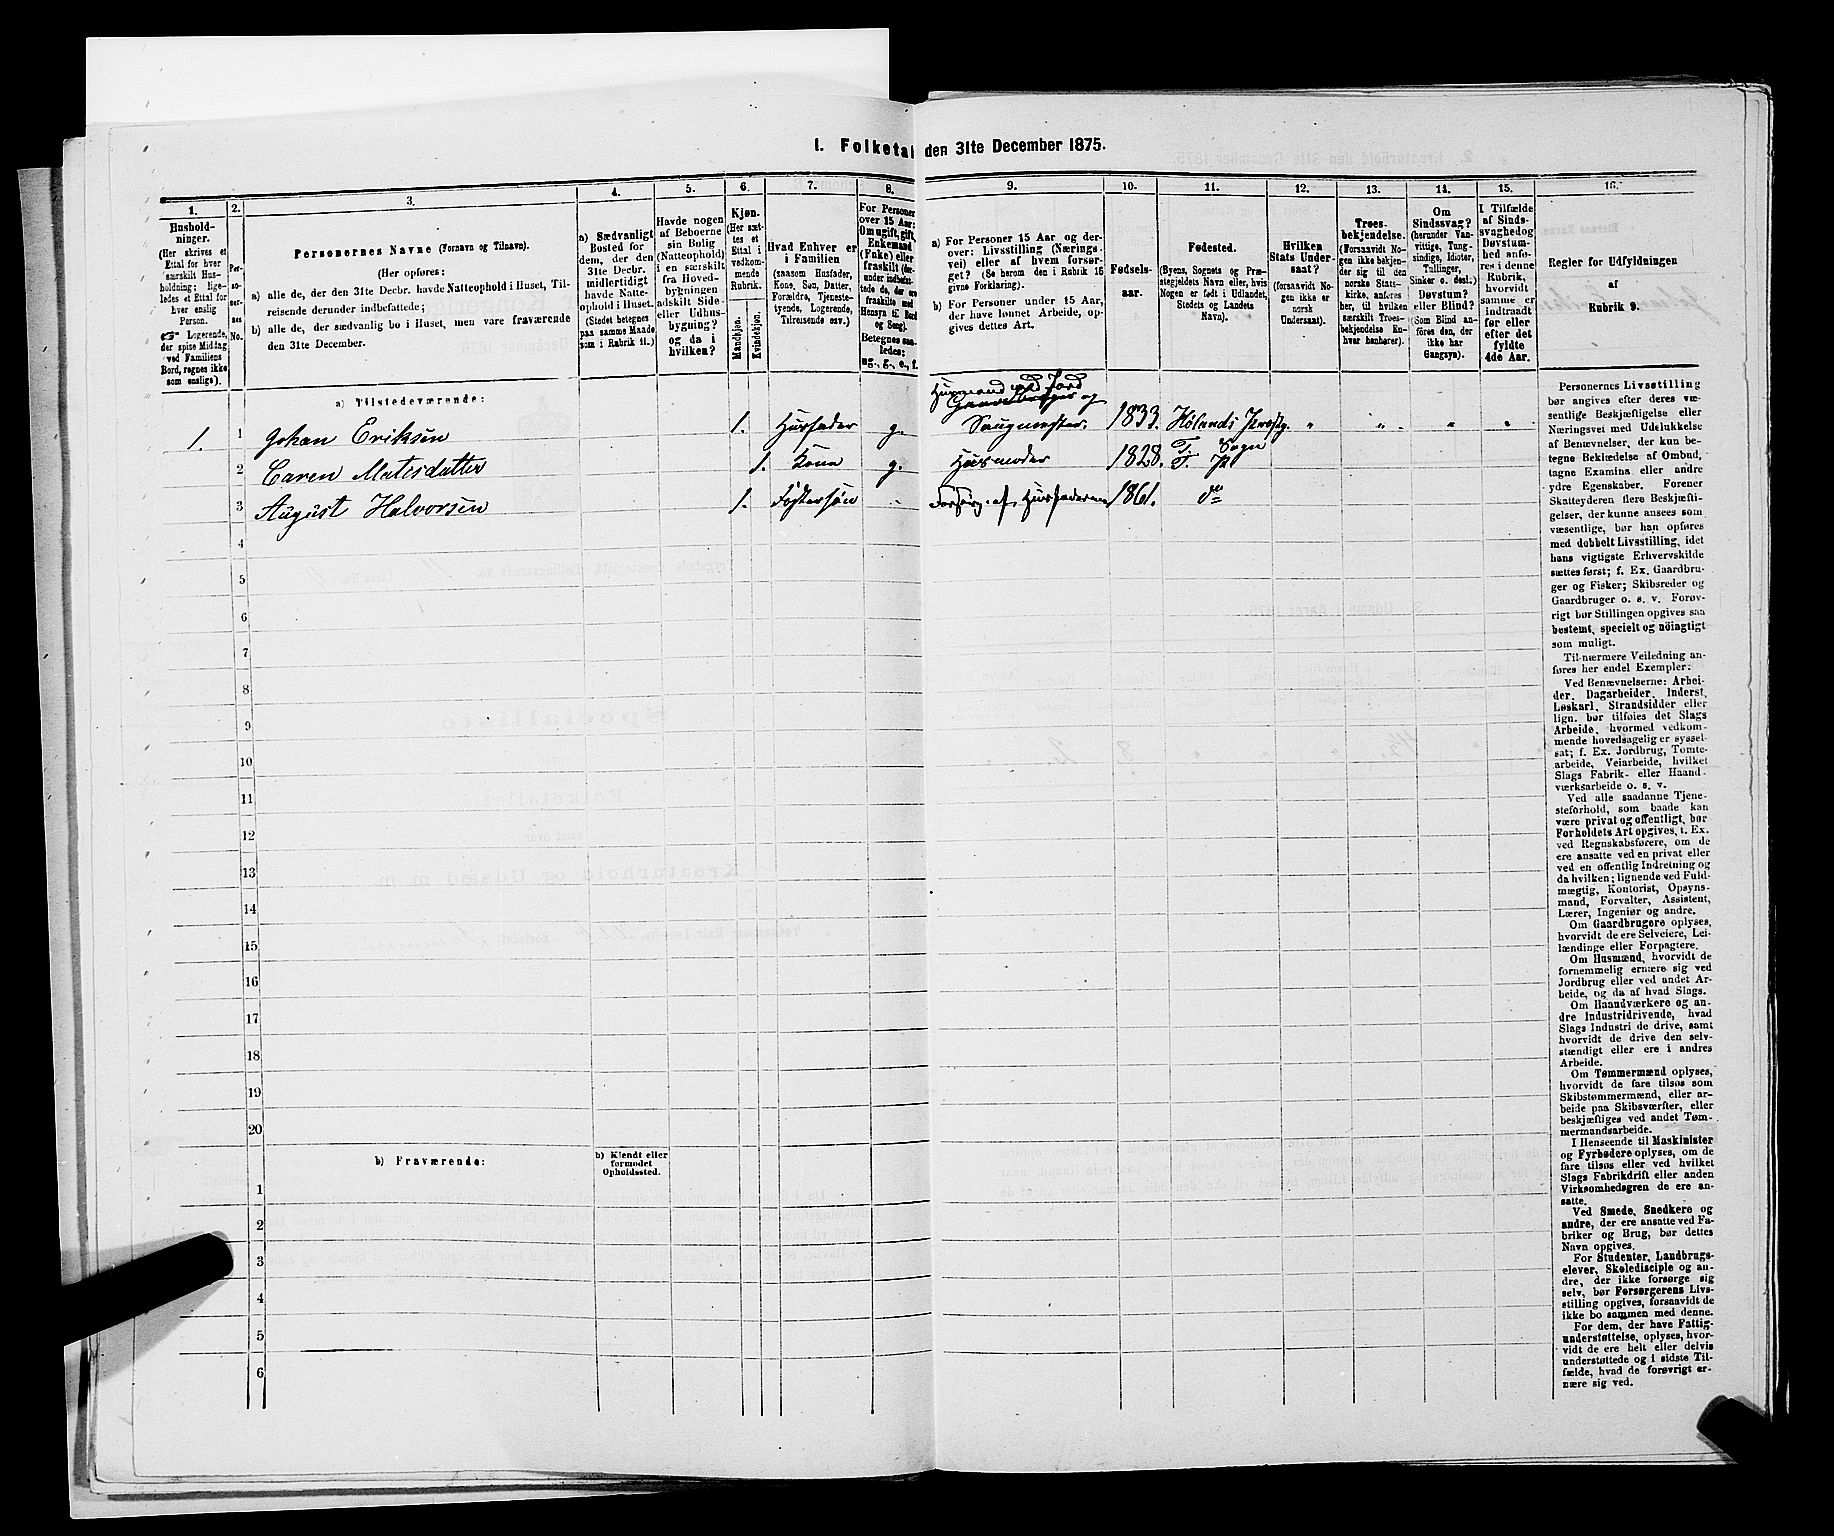 1. Folketal den 31te December 1875.
1.
Hushold-
ninger.
(Her skrives et
Ettal for hver
særskilt Hus-
holdning; lige-
ledes et Ettal for
hver enslig
Person.
Logerende,
der spise Middag
ved Familiens
Bord, regnes ikke
som enslige).
2.
Per-
so-
ner-
nes
No.
3.
Personernes Navne (Fornavn og Tilnavn).
(Her opføres:
a) alle de, der den 31te Decbr. havde Natteophold i Huset, Til-
reisende derunder indbefattede;
b) alle de, der sædvanlig bo i Huset, men vare fraværende
den 31te December.
4.
a) Sædvanligt
Bosted for
dem, der den
31te Decbr.
midlertidigt
havde Natte-
ophold i Huset.
(Stedet betegnes
paa samme Maade
som i Rubrik 11.)
5.
Havde nogen
af Beboerne
sin Bolig
(Natteophold)
i en særskilt
fra Hoved-
bygningen
adskilt Side-
eller Udhus-
bygning?
og da i
hvilken?
6.
Kjøn.
(Her sæt-
tes et
Ettal i
vedkom-
mende
Rubrik.
Mandkjøn.
Kvindekjøn.
7.
Hvad Enhver er
i Familien
(saasom Husfader,
Kone, Søn, Datter,
Forældre, Tjeneste-
tyende, Logerende,
Tilreisende osv.)
8.
For Personer
over 15 Aar:
Om ugift, gift,
Enkemand
(Enke) eller
fraskilt
Hensyn til Bord
og Seng).
Betegnes saa-
ledes:
ug., g., e., f.
9.
a) For Personer 15 Aar og der-
over: Livsstilling (Nærings-
vei) eller af hvem forsør-
get? (Se herom den i Rubrik 16
givne Forklaring).
b) For Personer under 15 Aar,
der have lønnet Arbeide, op-
gives dettes Art.
10.
Fødsels-
aar.
11.
Fødested.
(Byens, Sognets og Præ-
stegjeldets Navn eller, hvis
Nogen er født i Udlandet,
Stedets og Landets
Navn).
12.
Hvilken
Stats Under-
saat?
(forsaavidt No-
gen ikke er
norsk
Undersaat).
13.
Troes-
bekjendelse.
(Forsaavidt No-
gen ikke bekjen-
der sig til den
norske Stats-
kirke, anføres
her, til hvilken
særskilt Troes-
bekjendelse En-
hver henhører).
14.
Om
Sindssvag?
(herunder Van-
vittige, Tung-
sindige, Idioter,
Tullinger,
Sinker o. desl.)
Døvstum?
eller Blind?
(Som Blind an-
føres den, der
ikke har
Gangsyn).
15.
I Tilfælde
af Sinds-
svaghed og
Døvstum-
hed anfø-
res i denne
Rubrik,
hvorvidt
samme er
indtraadt
før eller
efter det
fyldte
4de Aar.
16.
Regler for Udfyldningen
af
Rubrik 9.
a) Tilstedeværende:
Husmand med Jord
Gaardbruger og
1. 1 Johan Eriksen 1. Husfader g. Saugmester. 1833. Hølands Prestg. " " " "
Sogn
2 Caren Matisdatter 1. Kone g. Husmoder 1828. T. Pl
3 August Halvorsen 1. Fostersøn - Forsørg. af Husfaderen 1861. do
4
5
6
7
8
9
10
11
12
13
14
15
16
17
18
19
20
b) Fraværende:
b) Kjendt eller
formodet
Opholdssted.
1
2
3
4
5
6
Personernes Livsstilling
bør angives efter deres væ-
sentlige Beskjæftigelse eller
Næringsvei med Udelukkelse
af Benævnelser, der kun be-
tegne Beklædelse af Ombud,
tagne Examina eller andre
ydre Egenskaber. Forener
Skatteyderen flere Beskjæfti-
gelser, der kunne ansees som
væsentlige, bør han opføres
med dobbelt Livsstilling, idet
hans vigtigste Erhvervskilde
sættes først; f. Ex. Gaardbru-
ger og Fisker; Skibsreder og
Gaardbruger o. s. v. Forøv-
rigt bør Stillingen opgives saa
bestemt, specielt og nöiagtigt
som muligt.
Til nærmere Veiledning an-
føres her endel Exempler:
Ved Benævnelserne: Arbei-
der, Dagarbeider, Inderst,
Løskarl, Strandsidder eller
lign. bør tilføies det Slags
Arbeide, hvormed vedkom-
mende hovedsagelig er syssel-
sat; f. Ex. Jordbrug, Tomte-
arbeide, Veiarbeide, hvilket
Slags Fabrik- eller Haand-
værksarbeide o. s. v.
Ved alle saadanne Tjene-
steforhold, som baade kan
være privat og offentligt, bør
Forholdets Art opgives, t. Ex.
ved Regnskabsførere, om de
ere ansatte ved en privat eller
ved en offentlig Indretning og
da hvilken; lignende ved Fuld-
mægtig, Kontorist, Opsyns-
mand, Forvalter, Assistent,
Lærer, Ingeniør og andre.
Om Gaardbrugere oplyses,
hvorvidt de ere Selveiere, Lei-
lændinge eller Forpagtere.
Om Husmænd, hvorvidt de
fornemmelig ernære sig ved
Jordbrug eller ved andet Ar-
beide, og da af hvad Slags.
Om Haandværkere og an-
dre Industridrivende, hvad
Slags Industri de drive, samt
hvorvidt de drive den selv-
stændigt eller ere i andres
Arbeide.
Om Tømmermænd oplyses,
hvorvidt de fare tilsøs som
Skibstømmermænd, eller ar-
beide paa Skibsværfter, eller
beskjæftiges ved andet Tøm-
mermandsarbeide.
I Henseende til Maskinister
og Fyrbødere oplyses, om de
fare tilsøs eller ved hvilket
Slags Fabrikdrift eller anden
Virksomhedsgren de ere an-
satte.
Ved Smede, Snedkere og
andre, der ere ansatte ved Fa-
briker og Brug, bør dettes
Navn opgives.
For Studenter, Landbrugs-
elever, Skoledisciple og an-
dre, der ikke forsørge sig
selv, bør Forsørgerens Livs-
stilling opgives, forsaavidt de
ikke bo sammen med denne.
For dem, der have Fattig-
understøttelse, oplyses, hvor-
vidt de ere helt eller delvis
understøttede og i sidste Til-
fælde, hvad de forøvrigt er-
nære sig ved.